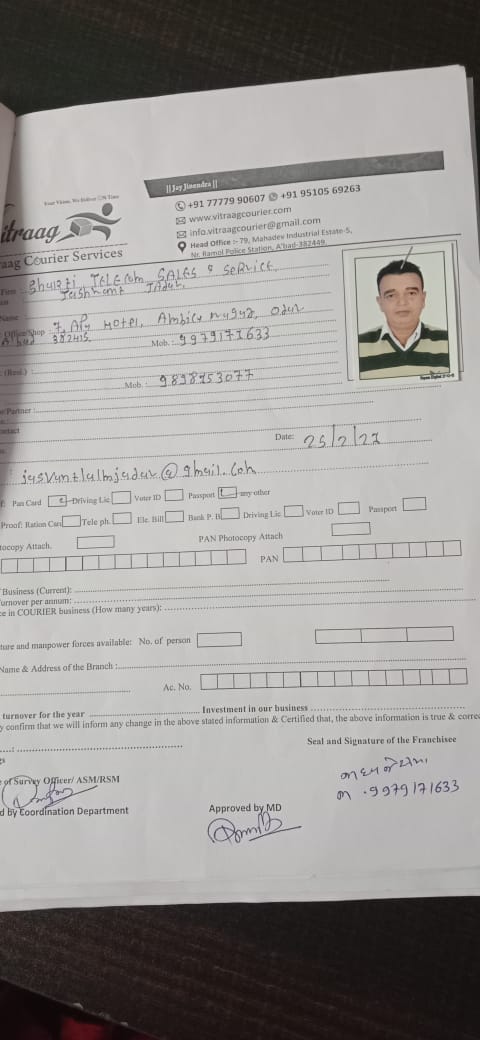 || Jay Jinendra ||
Your Vision, We Deliver ON Time
+91 77779 90607 +91 95105 69263
www.vitraagcourier.com
info.vitraagcourier@gmail.com
Head Office :- 79, Mahadev Industrial Estate-5,
Nr. Ramol Police Station, A'bad-382449.
itraag
raag Courier Services
Firm
TELEcom SALES & Service
Name
Office/Shop : 7, Hotel,
382415 Mob. : 9979171633
(Resi.)
Mob. : 9898253077
Partner :
ontact
Date: 25/2/27
jasvantlalmjadav@gmail.com
Pan Card Driving Lic Voter ID Passport any other
Proof: Ration Card Tele ph. Ele. Bill Bank P. B Driving Lic Voter ID Passport
tocopy Attach. PAN Photocopy Attach
PAN
Business (Current):
urnover per annum:
ce in COURIER business (How many years):
ture and manpower forces available: No. of person
Name & Address of the Branch :
Ac. No.
turnover for the year Investment in our business
y confirm that we will inform any change in the above stated information & Certified that, the above information is true & correc
Seal and Signature of the Franchisee
e of Survey Officer/ ASM/RSM
મ .9979171633
d by Coordination Department
Approved by MD